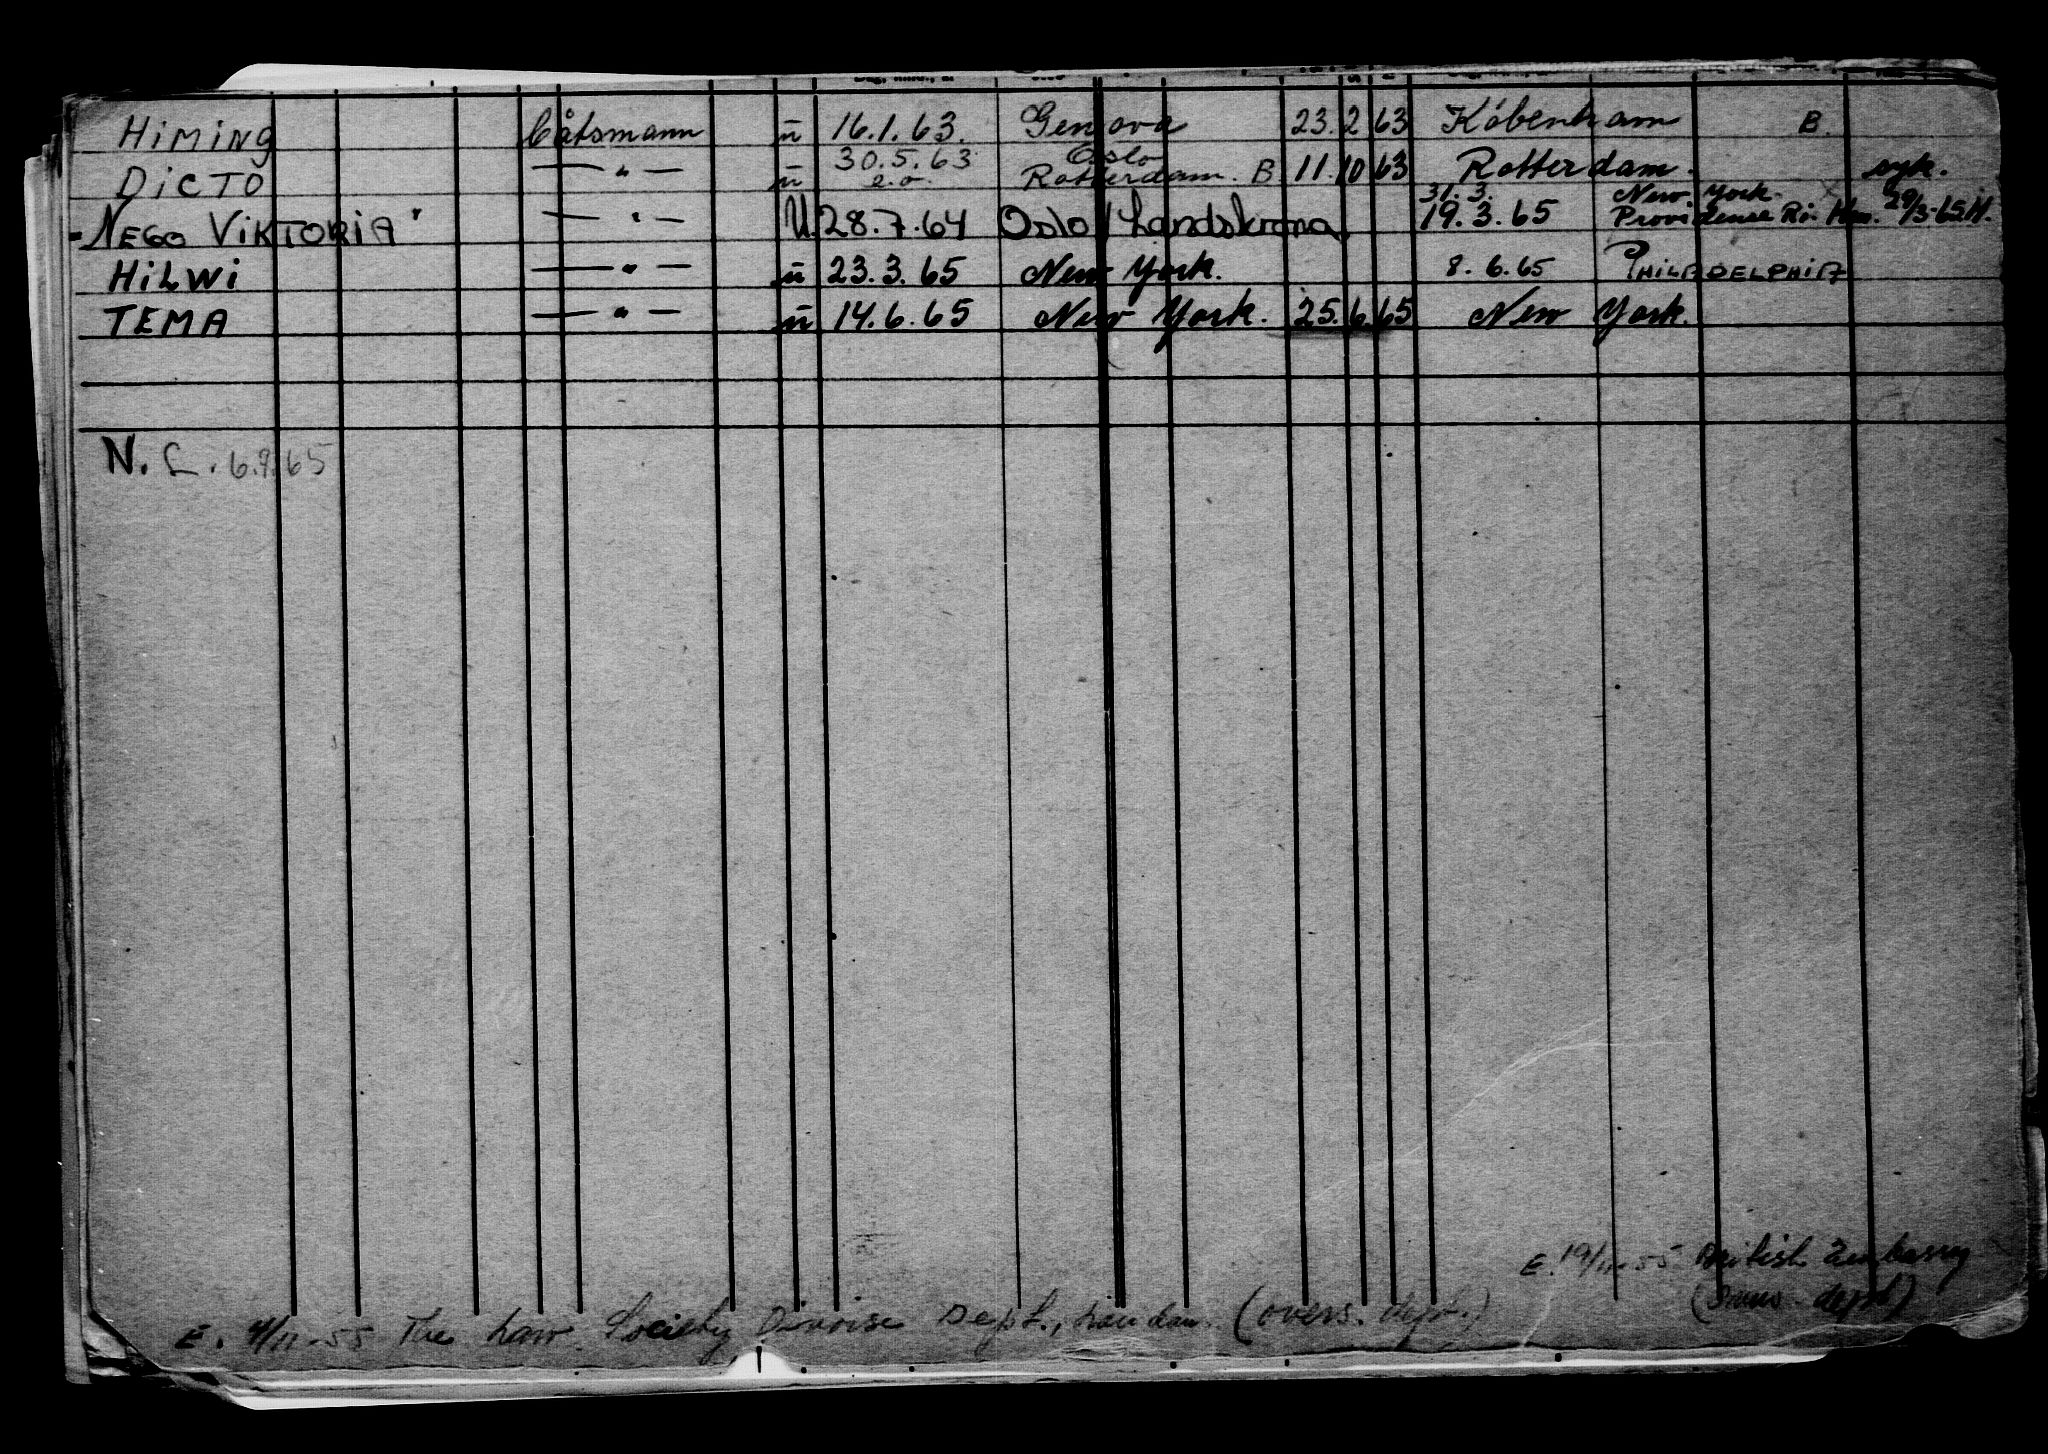 HiMiNg Båtsmann ū 16.1.63. Genova 23. 2 63 Köbenham B.
DiCTO — " — ū 30.5.63 e.o. Oslo Rotterdam. B 11. 10 63 Rotterdam. syk.
"NEGO VIKTORIA" — " — U. 28.7.64 Oslo / Landskrona 31.3. 19.3.65 New York. Providense Ri. 29/3-65 H.
HiLWi — " — ū 23.3.65 New York. 8.6.65 PHILADELPHIA
TEMA — " — ū 14.6.65 New York. 25.6.65 New York.
N. L. 6.9.65
E. 19/11-55 British Embassy
E. 4/11-55 The Law Society Divorse Dept., London. (overs. dept.)